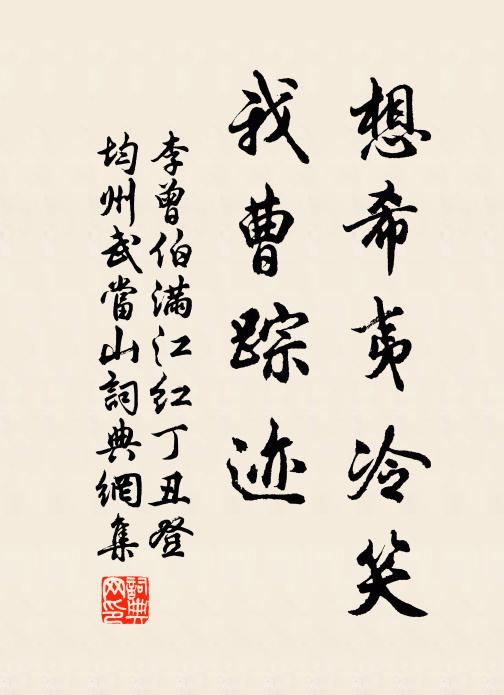 想希夷冷笑
我曹踪迹
李曾伯满江红丁丑登
均州武當山詞典網集
詞典網印